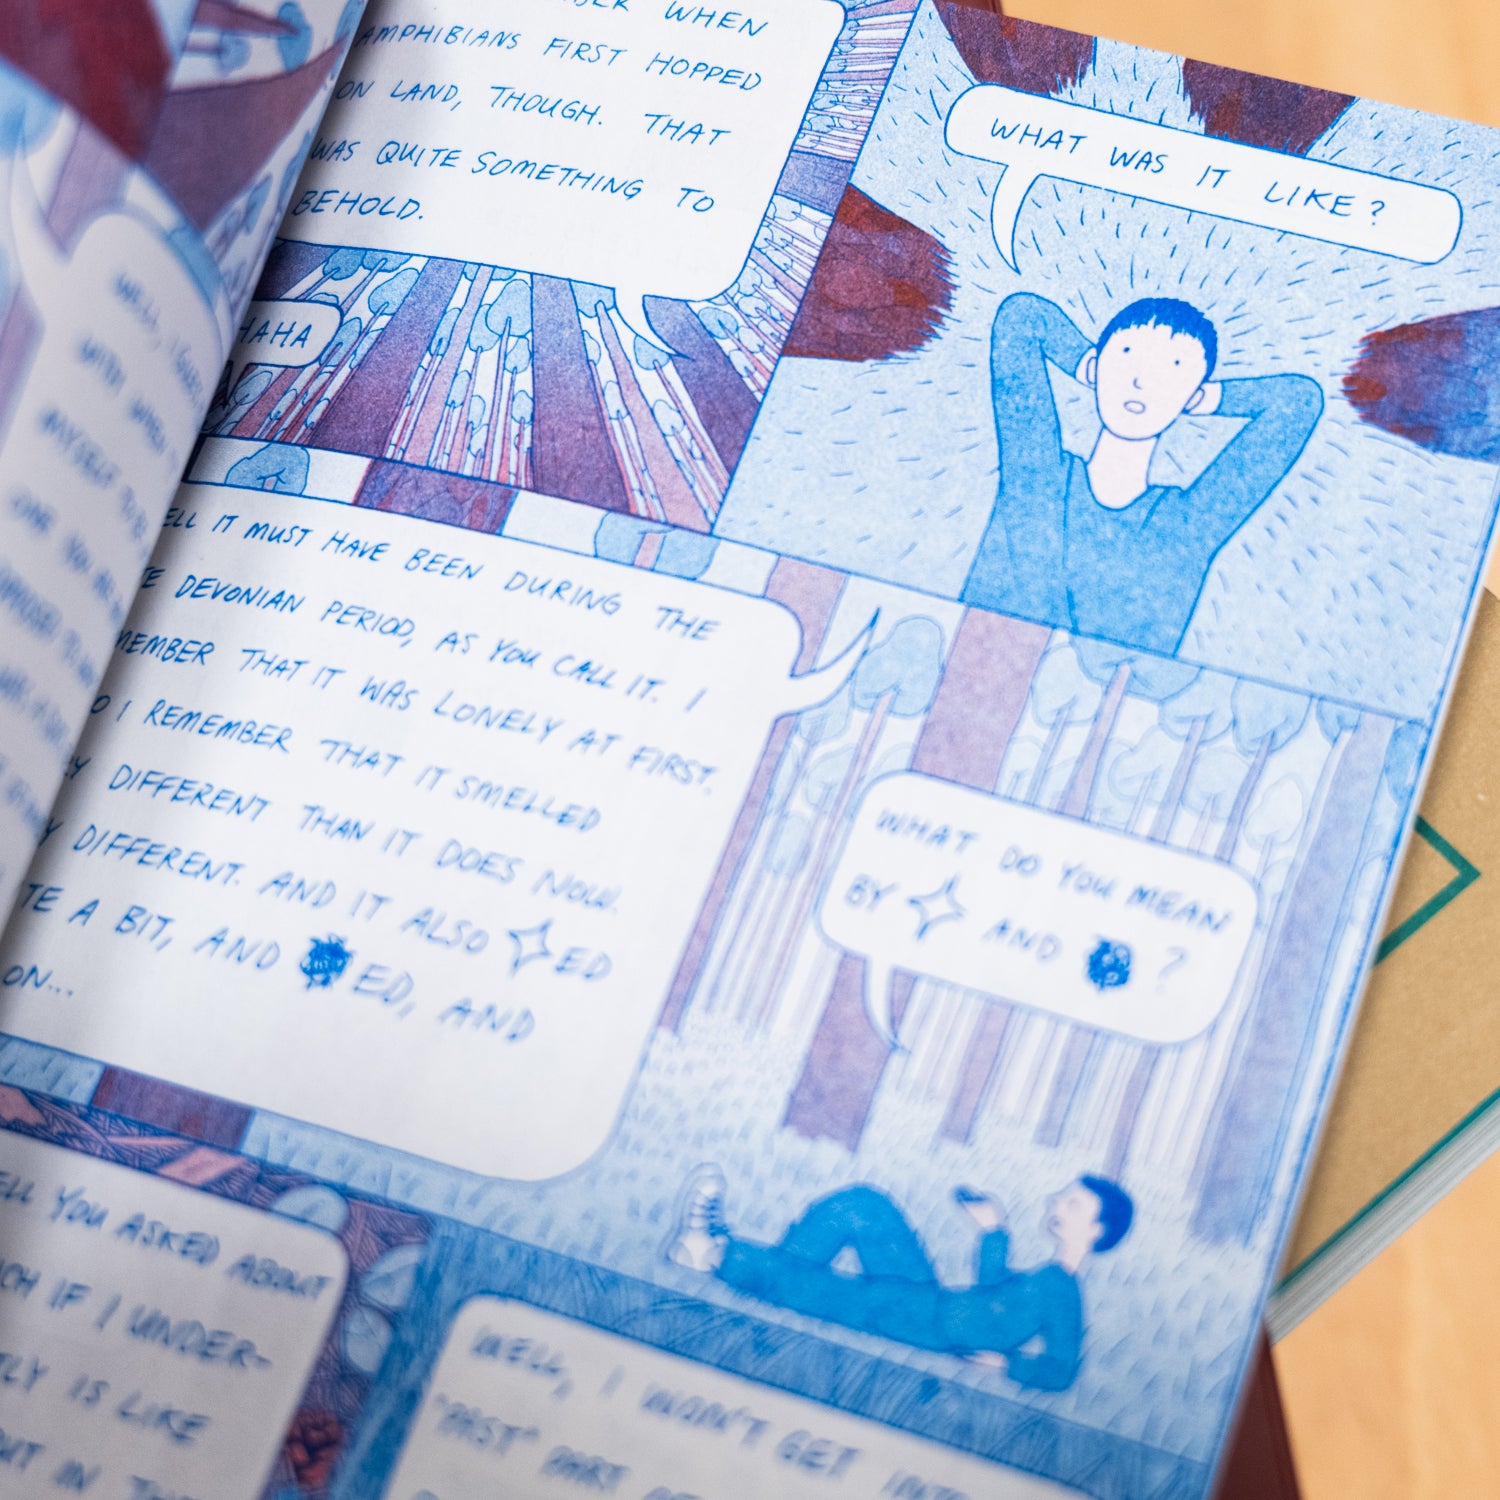 WHEN
AMPHIBIANS FIRST HOPPED
ON LAND, THOUGH. THAT
WAS QUITE SOMETHING TO
BEHOLD.
HAHA
WHAT WAS IT LIKE?
ELL IT MUST HAVE BEEN DURING THE
TE DEVONIAN PERIOD, AS YOU CALL IT. I
MEMBER THAT IT WAS LONELY AT FIRST.
O I REMEMBER THAT IT SMELLED
Y DIFFERENT THAN IT DOES NOW.
Y DIFFERENT. AND IT ALSO ED
TE A BIT, AND ED, AND
ON...
WHAT DO YOU MEAN
BY AND ?
ELL YOU ASKED ABOUT
CH IF I UNDER-
TLY IS LIKE
UT IN TH
WELL, I WON'T GET INTO
"PAST" PART
WELL, I GUESS
MYSELF TO BE
ONE